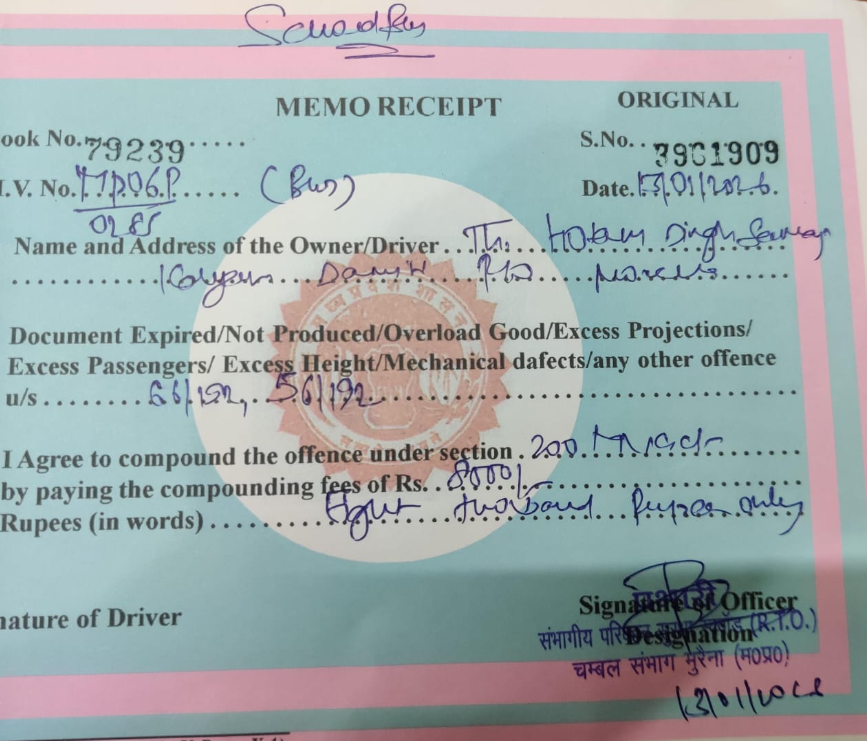 MEMO RECEIPT
ORIGINAL
ook No. 79239
S.No. 3901909
.V. No. MP06P (Bus)
0285
Date. 13/01/2026
Name and Address of the Owner/Driver .. Singh
Document Expired/Not Produced/Overload Good/Excess Projections/
Excess Passengers/ Excess Height/Mechanical dafects/any other offence
u/s ........ 66/192, 56/192
I Agree to compound the offence under section . 200
by paying the compounding fees of Rs. 8000/-
Rupees (in words) .......... Eight thousand Rupees only
nature of Driver
Signature of Officer
Designation (R.T.O.)
संभागीय
चम्बल संभाग मुरैना (म०प्र०)
13/01/2026